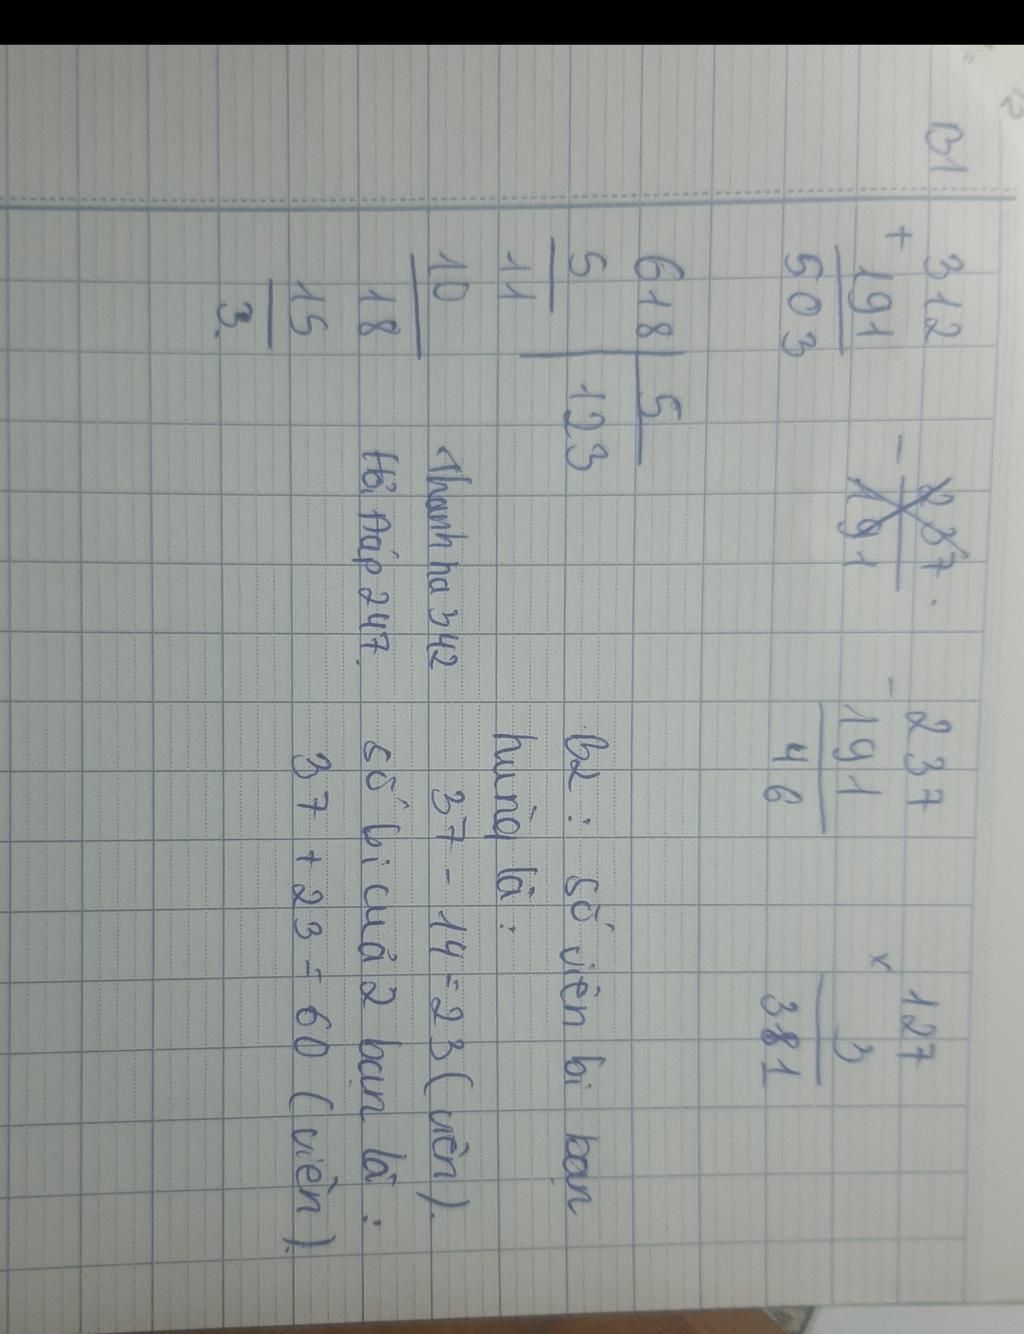 B1
312
+
191
503
237
-
191
237
-
191
46
127
x
3
381
618 5
5 123
11
10
18
15
3
Thanh hà 342
Hỏi Đáp 247
B2: số viên bi bạn
hùng là:
37 - 14 = 23 (viên).
số bi của 2 bạn là:
37 + 23 = 60 (viên).